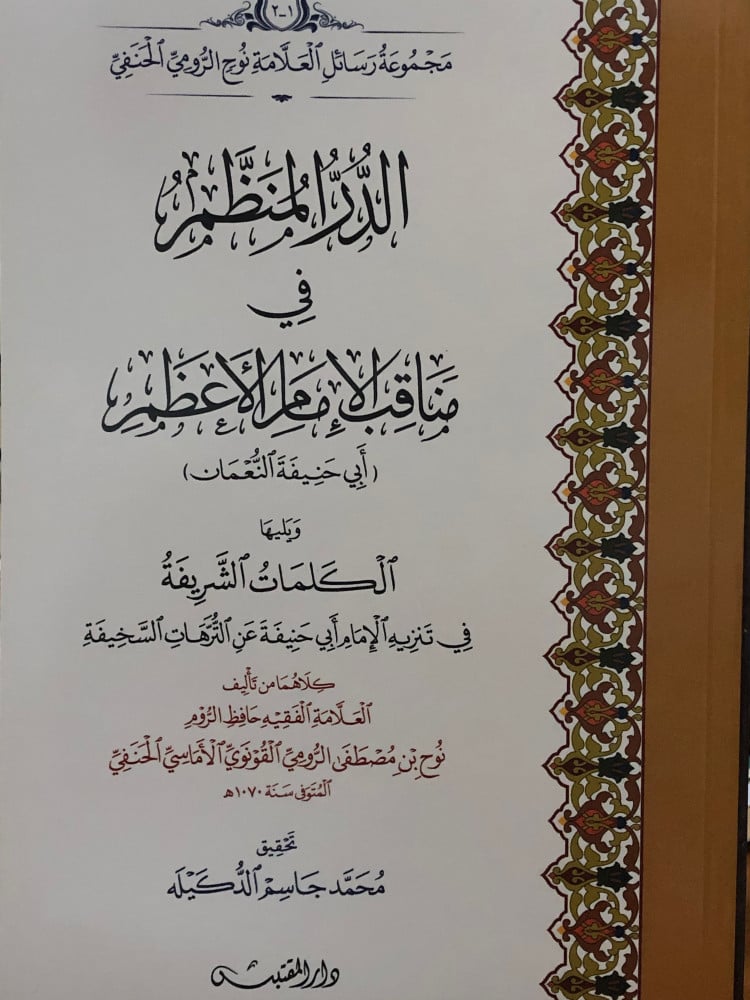 ١-٢
مَجْمُوعَةُ رَسَائِلِ ٱلْعَلَّامَةِ نُوحٍ الرُّومِيِّ ٱلْحَنَفِيِّ
الدُّرُّ المُنَظَّمُ
فِي
مَنَاقِبِ الإِمَامِ الأَعْظَمِ
(أَبِي حَنِيفَةَ ٱلنُّعْمَان)
وَيَلِيهَا
ٱلْكَلِمَاتُ ٱلشَّرِيفَةُ
فِي تَنْزِيهِ ٱلْإِمَامِ أَبِي حَنِيفَةَ عَنِ ٱلتُّرَّهَاتِ ٱلسَّخِيفَةِ
كِلَاهُمَا مِن تَأْلِيف
ٱلْعَلَّامَةِ ٱلْفَقِيهِ حَافِظِ ٱلرُّومِ
نُوحِ بْنِ مُصْطَفَى ٱلرُّومِيِّ ٱلْقُونَوِيِّ ٱلْأَمَاسِيِّ ٱلْحَنَفِيِّ
ٱلْمُتَوَفَّى سَنَة ١٠٧٠ هـ
تَحْقِيق
مُحَمَّد جَاسِمْ ٱلدُّكَيْلَه
دار المقتبس